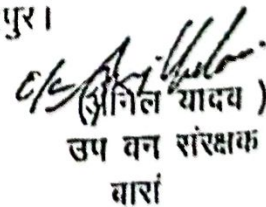 पुर।
(अनिल यादव )
उप वन संरक्षक
वारां